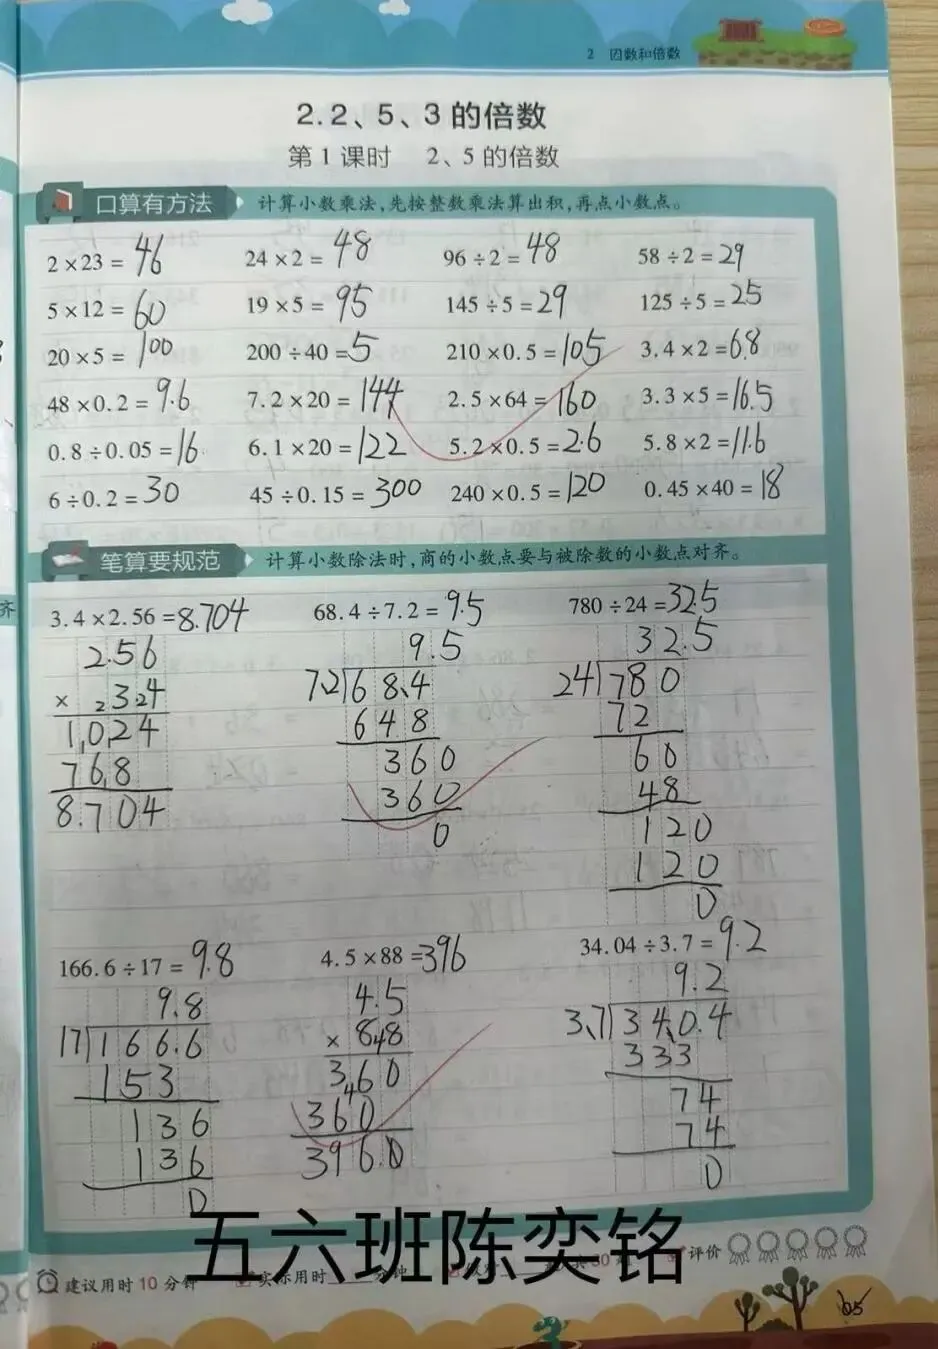 2 因数和倍数
2.2、5、3的倍数
第1课时 2、5的倍数
口算有方法 计算小数乘法,先按整数乘法算出积,再点小数点。
2×23=46 24×2=48 96÷2=48 58÷2=29
5×12=60 19×5=95 145÷5=29 125÷5=25
20×5=100 200÷40=5 210×0.5=105 3.4×2=6.8
48×0.2=9.6 7.2×20=144 2.5×64=160 3.3×5=16.5
0.8÷0.05=16 6.1×20=122 5.2×0.5=2.6 5.8×2=11.6
6÷0.2=30 45÷0.15=300 240×0.5=120 0.45×40=18
笔算要规范 计算小数除法时,商的小数点要与被除数的小数点对齐。
3.4×2.56=8.704 68.4÷7.2=9.5 780÷24=32.5
2.56 9.5 32.5
×3.4 7.2)68.4 24)780
1024 648 72
768 360 60
8.704 360 48
0 120
120
0
166.6÷17=9.8 4.5×88=396 34.04÷3.7=9.2
9.8 4.5 9.2
17)166.6 ×88 3.7)34.0.4
153 360 333
136 360 74
136 396.0 74
0 0
五六班陈奕铭
建议用时10分钟 实际用时 分钟 评价